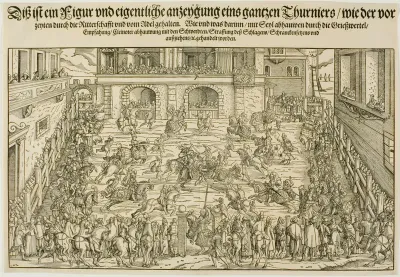 Diß ist ein Figur vnd eigentliche anzeygung eins gantzen Thurniers / wie der vor
zeyten durch die Ritterschafft vnd vom Adel gehalten. Wie vnd was darinn / mit Seyl abhawen durch die Grießwertel /
Empfahung / Kleinoter abhawung mit den Schwerdten / Straffung deß Schlagens / Schranckensetzens vnd
außziehens ist gehandelt worden.